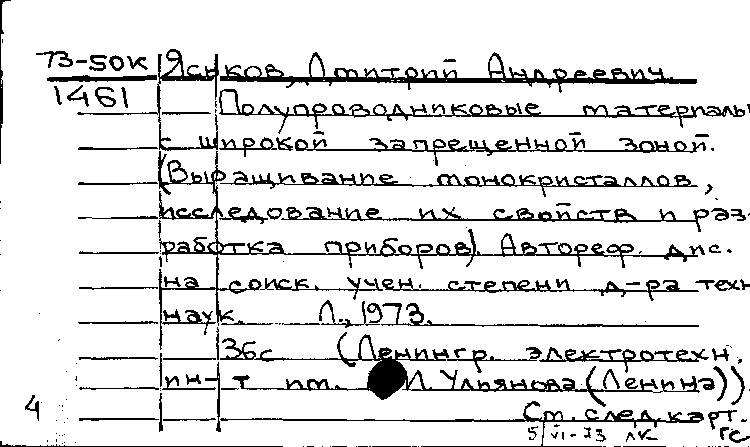 73-50К Яськов, Дмитрий Андреевич.
1461 Полупроводниковые материалы
с широкой запрещенной зоной.
(Выращивание монокристаллов,
исследование их свойств и раз-
работка приборов). Автореф. дис.
на соиск. учен. степени д-ра техн.
наук. Л., 1973.
36с (Ленингр. электротехн.
ин-т им. И. Ульянова (Ленина))
4 См. след. карт.
5/VI-73 ЛК ГС